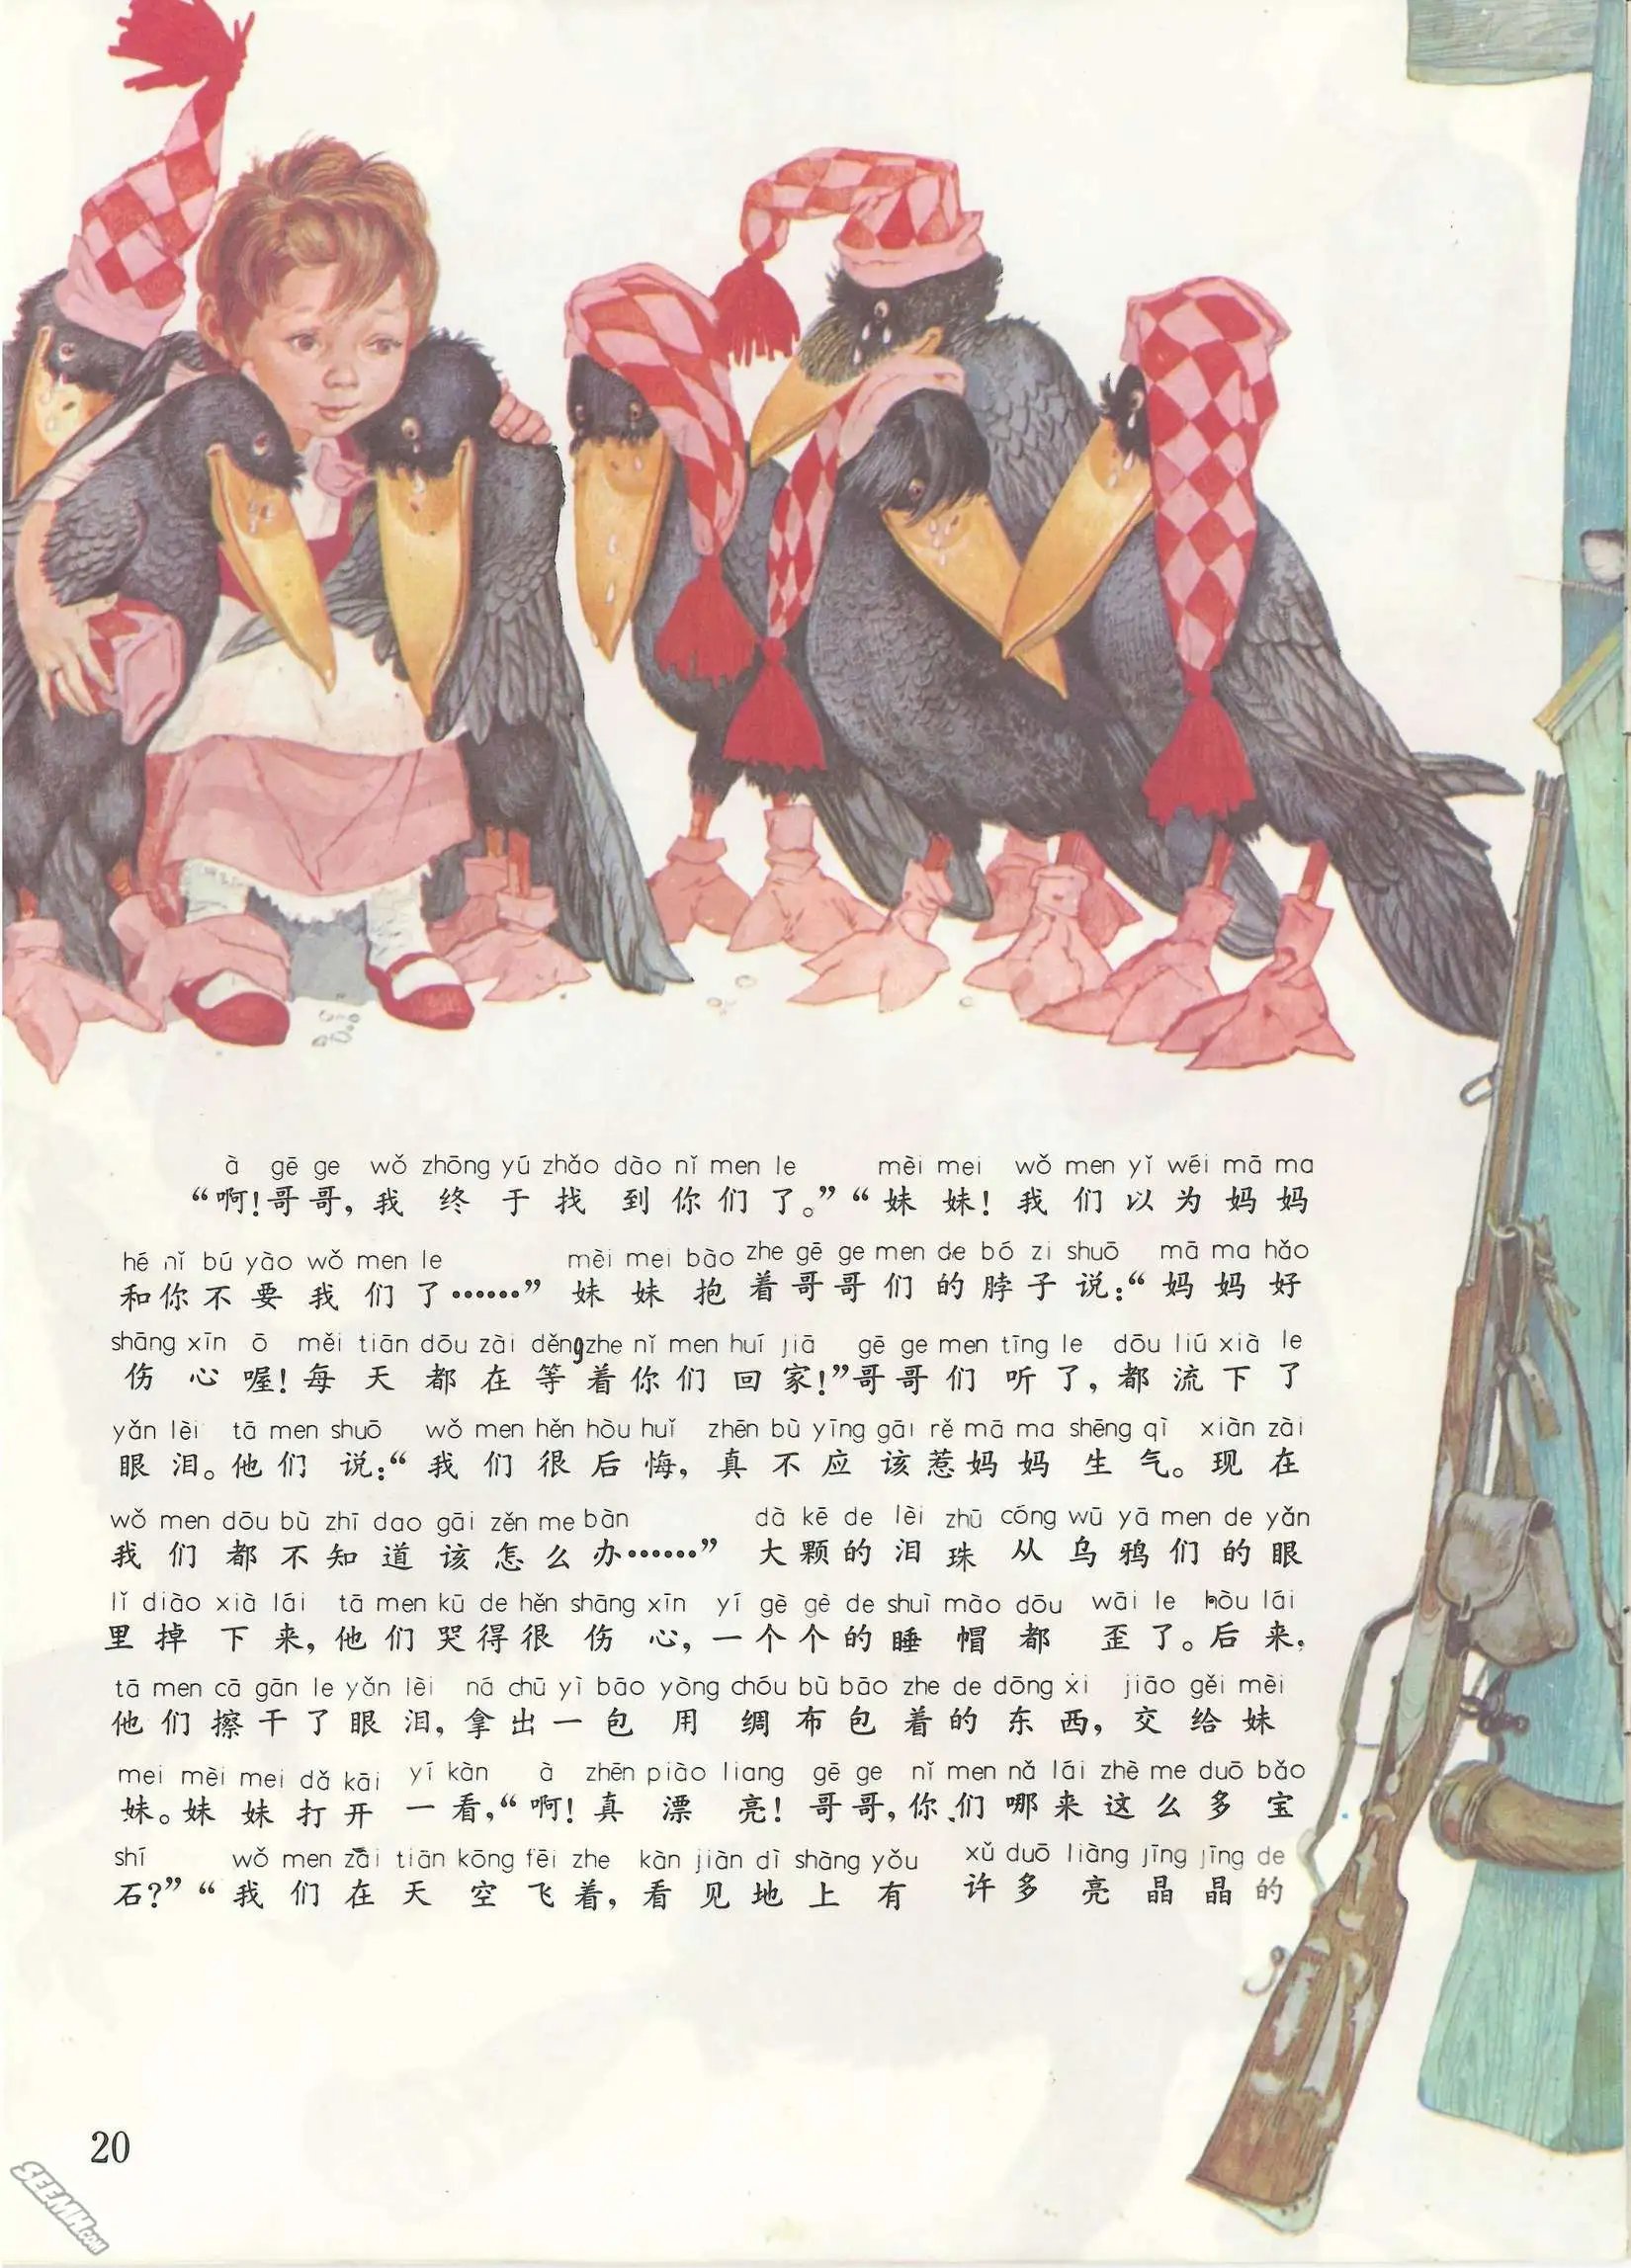 à gē ge wǒ zhōng yú zhǎo dào nǐ men le mèi mei wǒ men yǐ wéi mā ma
“啊！哥哥，我终于找到你们了。”“妹妹！我们以为妈妈
hé nǐ bú yào wǒ men le mèi mei bào zhe gē ge men de bó zi shuō mā ma hǎo
和你不要我们了……”妹妹抱着哥哥们的脖子说：“妈妈好
shāng xīn ō měi tiān dōu zài děng zhe nǐ men huí jiā gē ge men tīng le dōu liú xià le
伤心喔！每天都在等着你们回家！”哥哥们听了，都流下了
yǎn lèi tā men shuō wǒ men hěn hòu huǐ zhēn bù yīng gāi rě mā ma shēng qì xiàn zài
眼泪。他们说：“我们很后悔，真不应该惹妈妈生气。现在
wǒ men dōu bù zhī dao gāi zěn me bàn dà kē de lèi zhū cóng wū yā men de yǎn
我们都不知道该怎么办……”大颗的泪珠从乌鸦们的眼
lǐ diào xià lái tā men kū de hěn shāng xīn yí gè gè de shuì mào dōu wāi le hòu lái
里掉下来，他们哭得很伤心，一个个的睡帽都歪了。后来，
tā men cā gān le yǎn lèi ná chū yì bāo yòng chóu bù bāo zhe de dōng xi jiāo gěi mèi
他们擦干了眼泪，拿出一包用绸布包着的东西，交给妹
mei mèi mei dǎ kāi yí kàn à zhēn piào liang gē ge nǐ men nǎ lái zhè me duō bǎo
妹。妹妹打开一看，“啊！真漂亮！哥哥，你们哪来这么多宝
shí wǒ men zài tiān kōng fēi zhe kàn jiàn dì shàng yǒu xǔ duō liàng jīng jīng de
石？”“我们在天空飞着，看见地上有许多亮晶晶的
20
SEEMH.COM